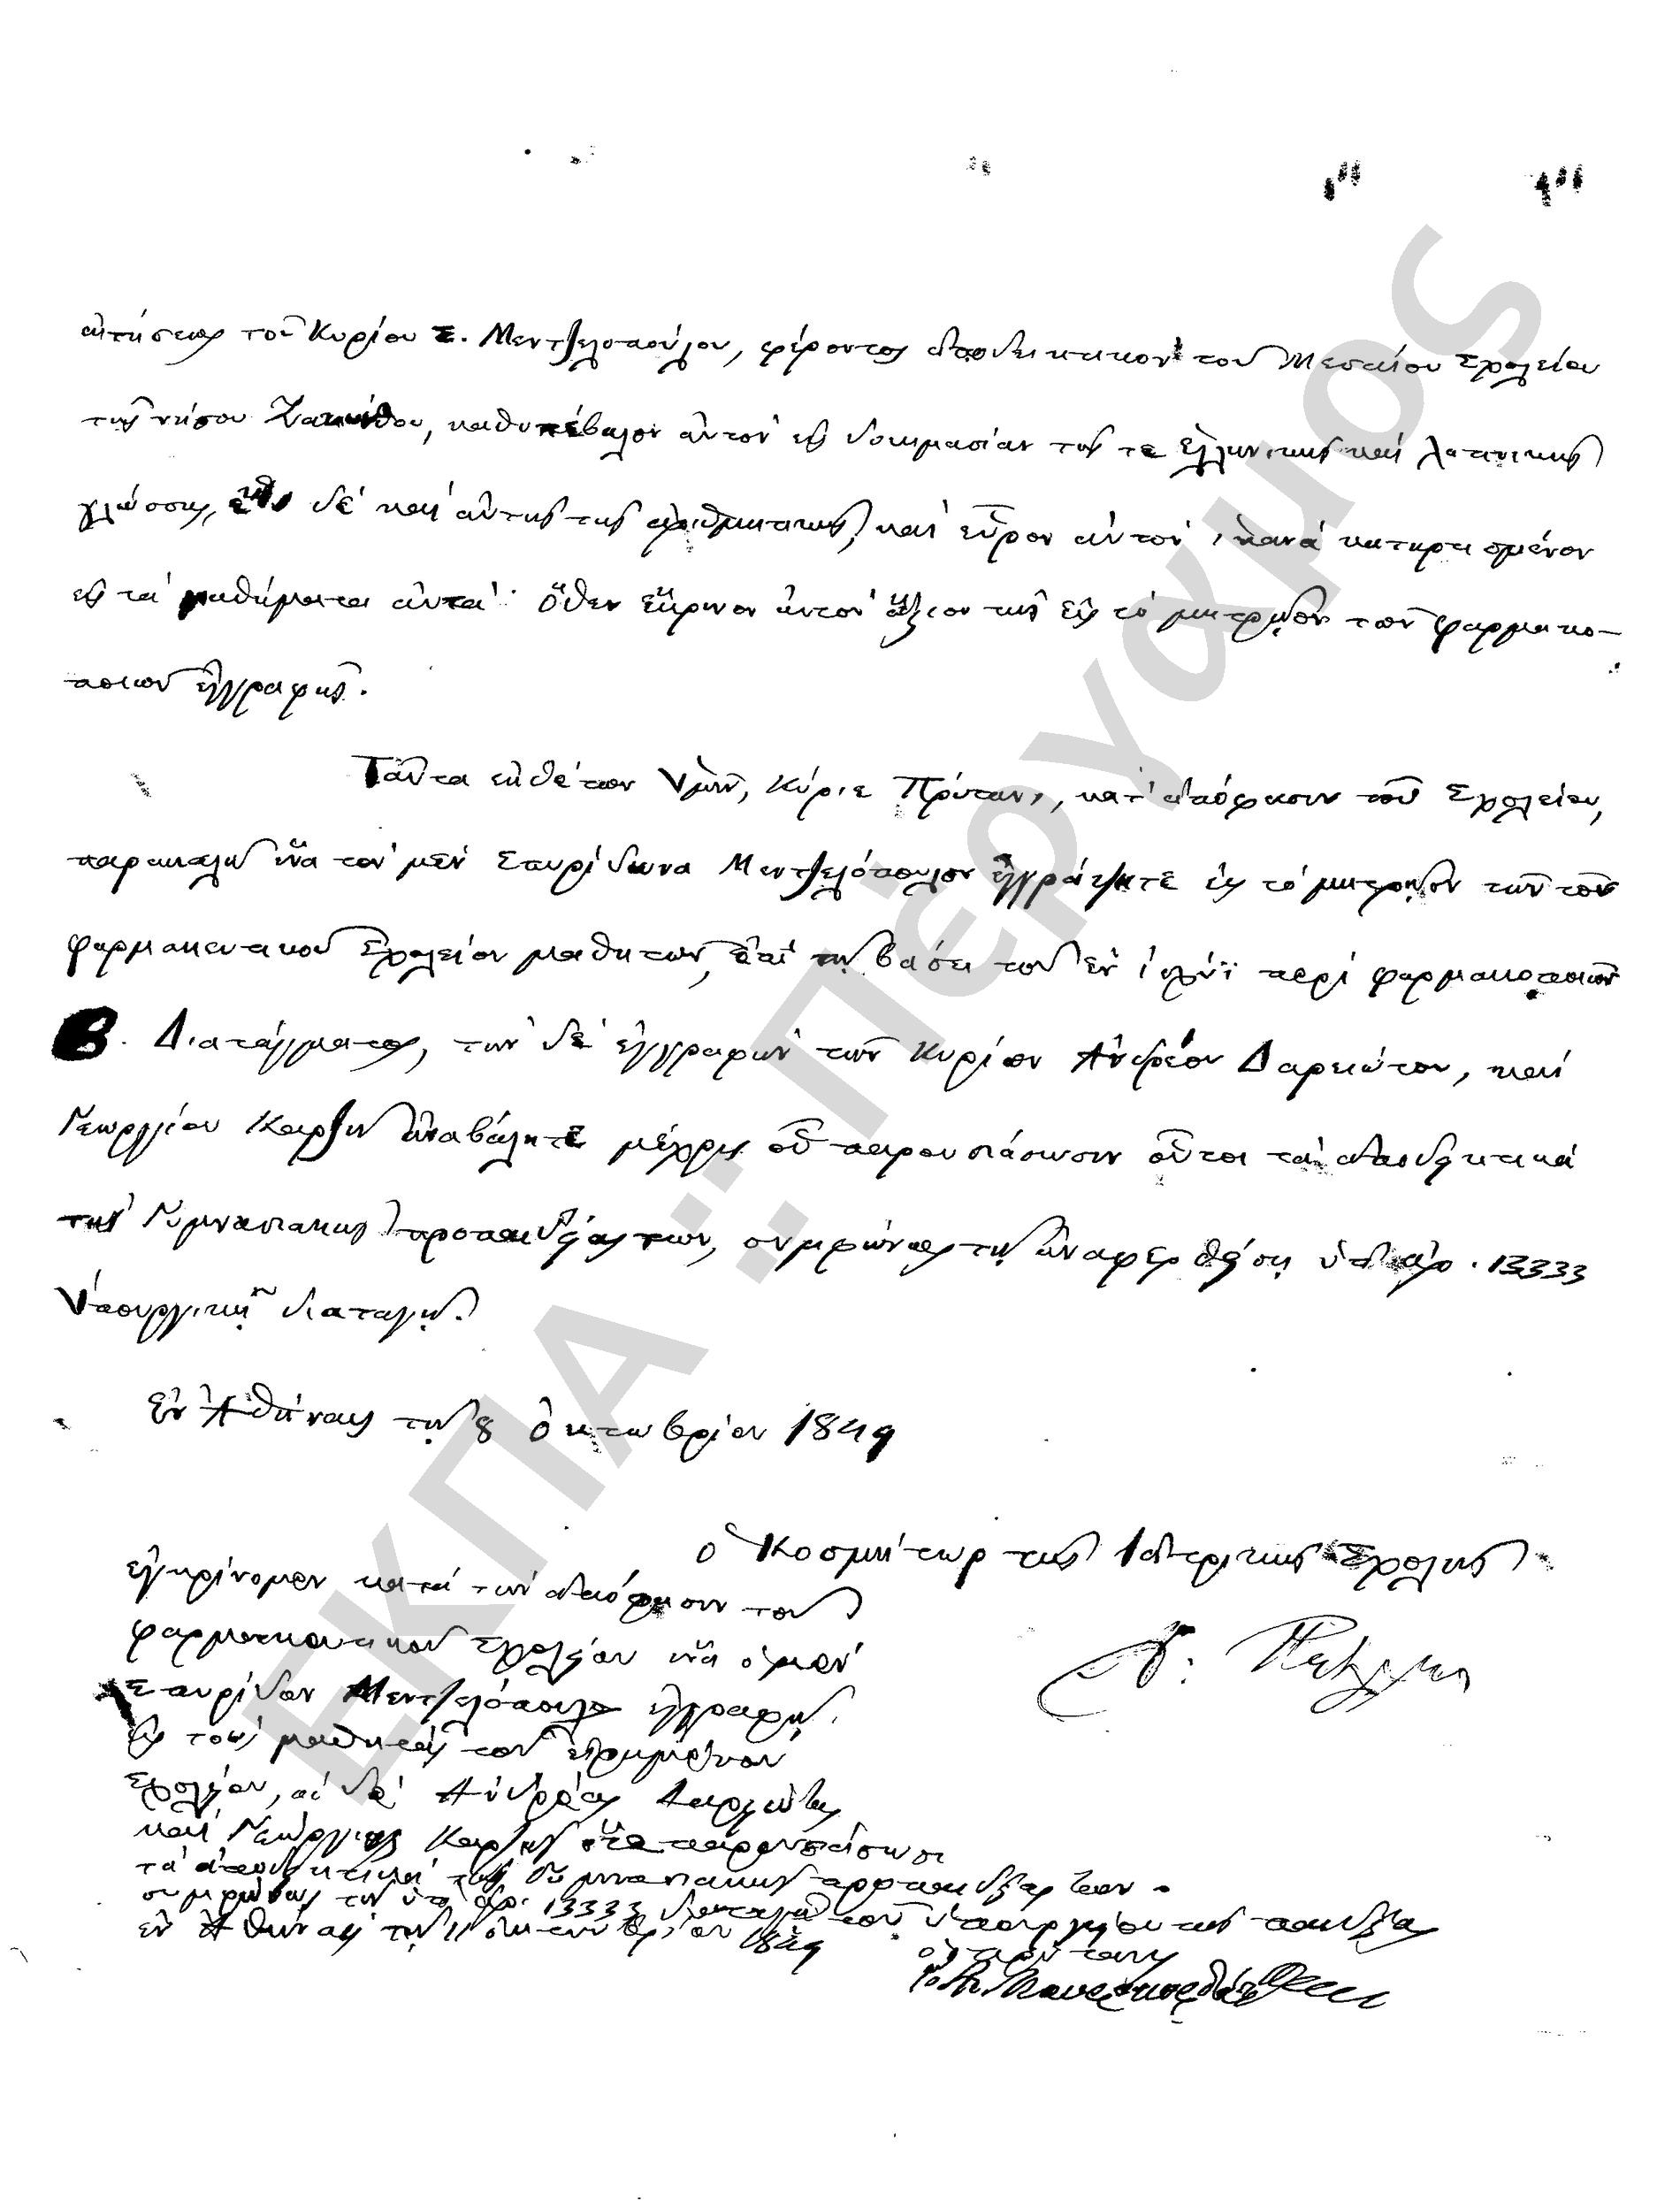 αἰτήσεως τοῦ Κυρίου Σ. Μεντζελοπούλου, φέροντος ἀποδεικτικὸν τοῦ Μεσαίου Σχολείου
τῆς νήσου Ζακύνθου, καθυπέβαλον αὐτὸν εἰς δοκιμασίαν τῆς τε ἑλληνικῆς καὶ λατινικῆς
γλώσσης, δὲ καὶ αὐτῆς τῆς ἀριθμητικῆς, καὶ εὗρον αὐτὸν ἱκανὰ κατηρτισμένον
εἰς τὰ μαθήματα αὐτά· ὅθεν ἔκρινον αὐτὸν ἄξιον τῆς εἰς τὸ μητρῷον τῶν φαρμακο-
ποιῶν ἐγγραφῆς.
Ταῦτα ἐκθέτων Ὑμῖν, Κύριε Πρύτανι, κατ' ἀπόφασιν τοῦ Σχολείου,
παρακαλῶ ἵνα τὸν μὲν Σπυρίδωνα Μεντζελόπουλον ἐγγράψητε εἰς τὸ μητρῷον τῶν τοῦ
φαρμακευτικοῦ Σχολείου μαθητῶν, ἐπὶ τῇ βάσει τοῦ ἐν ἰσχύϊ περὶ φαρμακοποιῶν
Β. Διατάγματος, τὴν δὲ ἐγγραφὴν τῶν Κυρίων Ἀνδρέου Δαρειώτου, καὶ
Γεωργίου Καρζῆ ἀναβάλητε μέχρις οὗ παρουσιάσωσιν οὗτοι τὰ ἀποδεικτικὰ
τῆς Γυμνασιακῆς προπαιδείας των, συμφώνως τῇ ἀναφερθείσῃ ὑπ' ἀρ. 13333
Ὑπουργικῇ διαταγῇ.
Ἐν Ἀθήναις τῇ 8 Ὀκτωβρίου 1849
Ὁ Κοσμήτωρ τῆς Ἰατρικῆς Σχολῆς
ἐγκρίνομεν κατὰ τὴν ἀπόφασιν τοῦ
φαρμακευτικοῦ σχολείου ἵνα ὁ μὲν
Σπυρίδων Μεντζελόπουλος ἐγγραφῇ
εἰς τοὺς μαθητὰς τοῦ εἰρημένου
σχολείου, οἱ δὲ Ἀνδρέας Δαρειώτης
καὶ Γεώργιος Καρζῆς ἵνα παρουσιάσωσι
τὰ ἀποδεικτικὰ τῆς Γυμνασιακῆς προπαιδείας των.
συμφώνως τῇ ὑπ' ἀρ. 13333 διαταγῇ τοῦ ὑπουργείου τῆς παιδείας
ἐν Ἀθήναις τῇ 11 ὀκτωβρίου 1849
ὁ πρύτανις
ΕΚΠΑ :: Πέργαμος